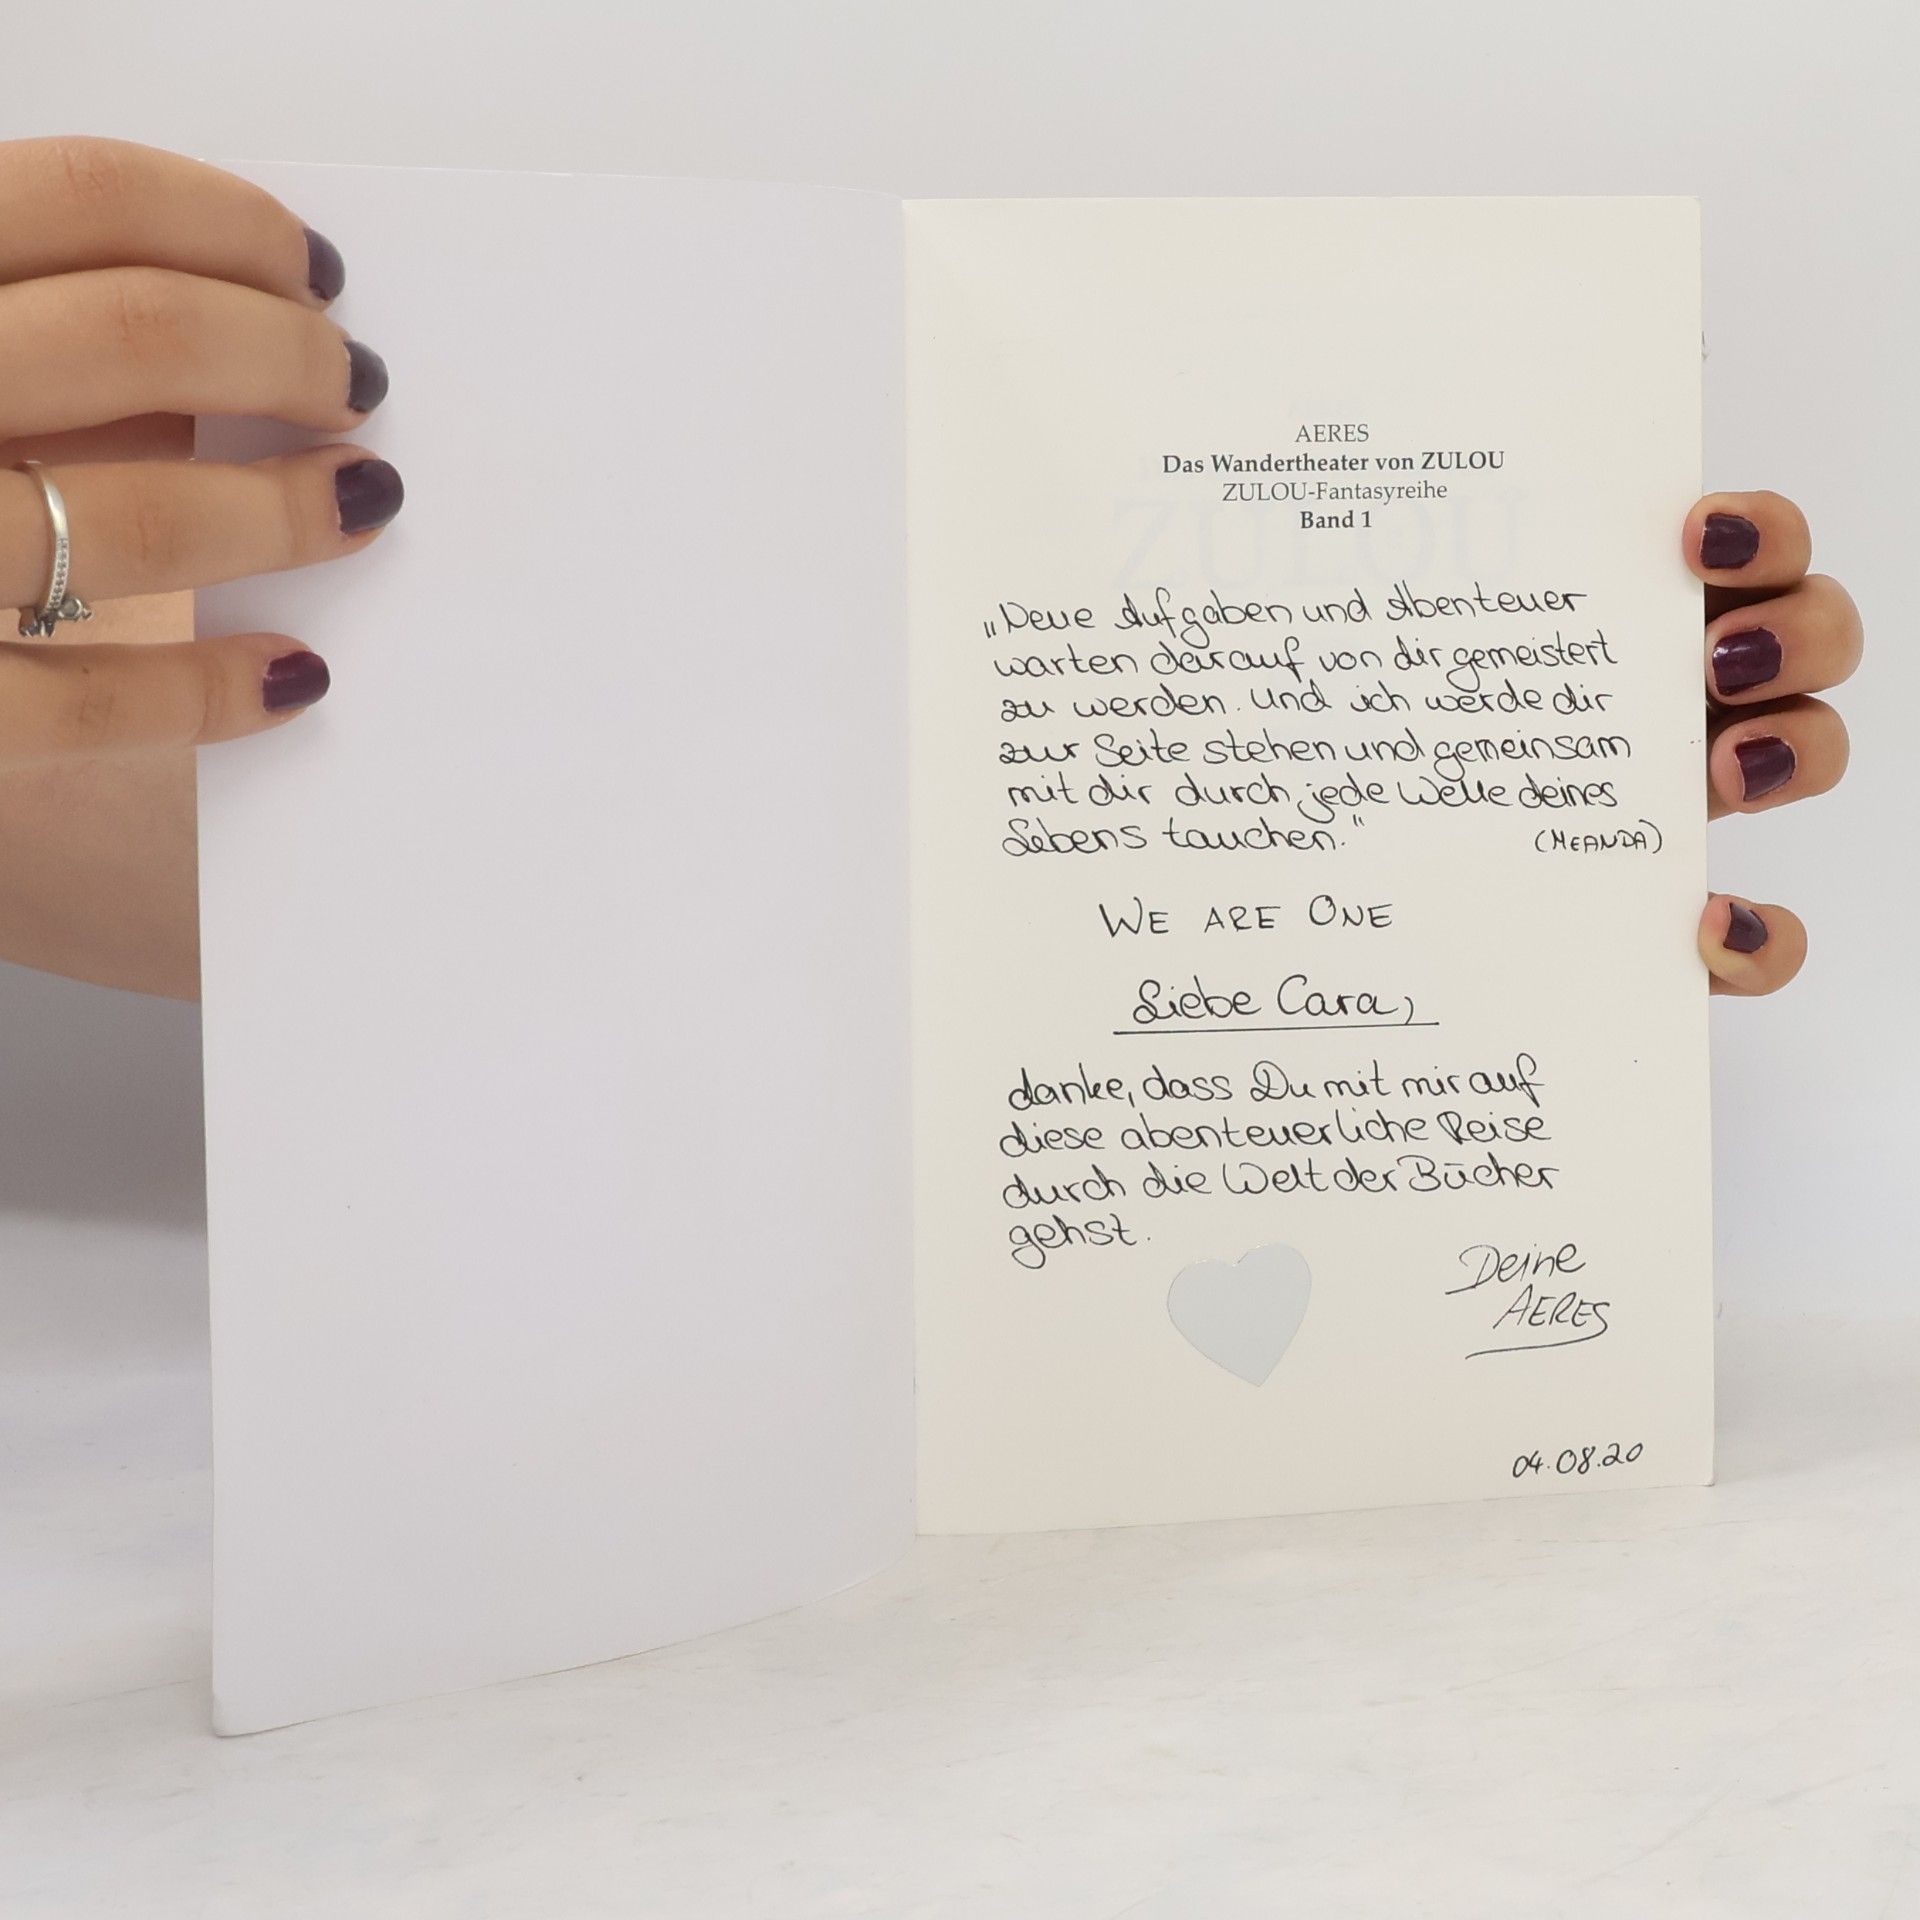 AERES
Das Wandertheater von ZULOU
ZULOU-Fantasyreihe
Band 1
„Neue Aufgaben und Abenteuer
warten darauf von dir gemeistert
zu werden. Und ich werde dir
zur Seite stehen und gemeinsam
mit dir durch jede Welle deines
Lebens tauchen."
(MEANDA)
WE ARE ONE
Liebe Cara,
danke, dass Du mit mir auf
diese abenteuerliche Reise
durch die Welt der Bücher
gehst.
Deine
AERES
04.08.20